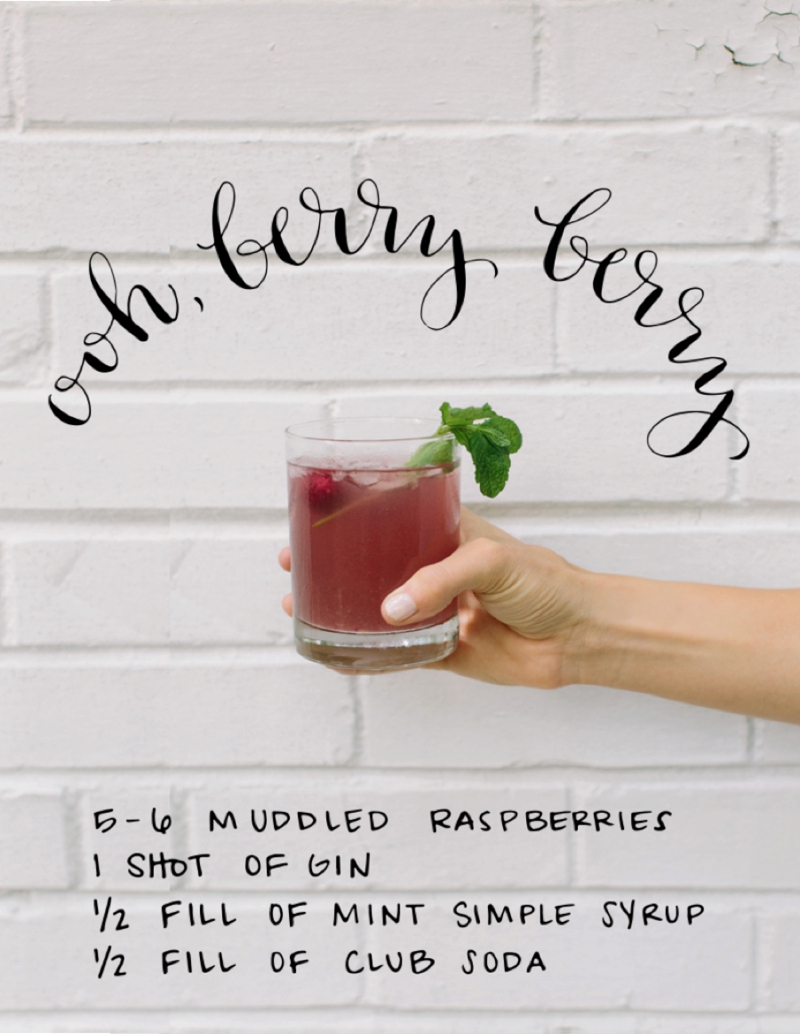 ooh, berry berry
5-6 MUDDLED RASPBERRIES
1 SHOT OF GIN
1/2 FILL OF MINT SIMPLE SYRUP
1/2 FILL OF CLUB SODA